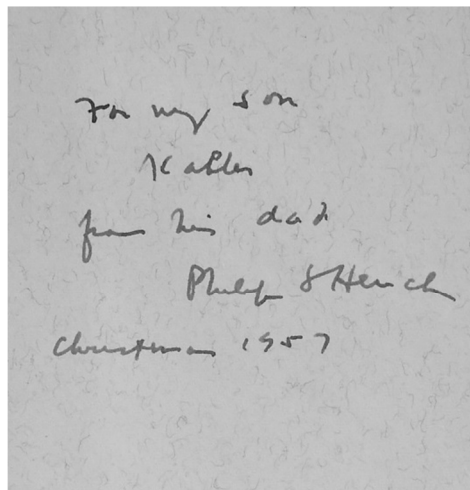 For my son
Kahler
from his dad
Philip S Hench
Christmas 1957